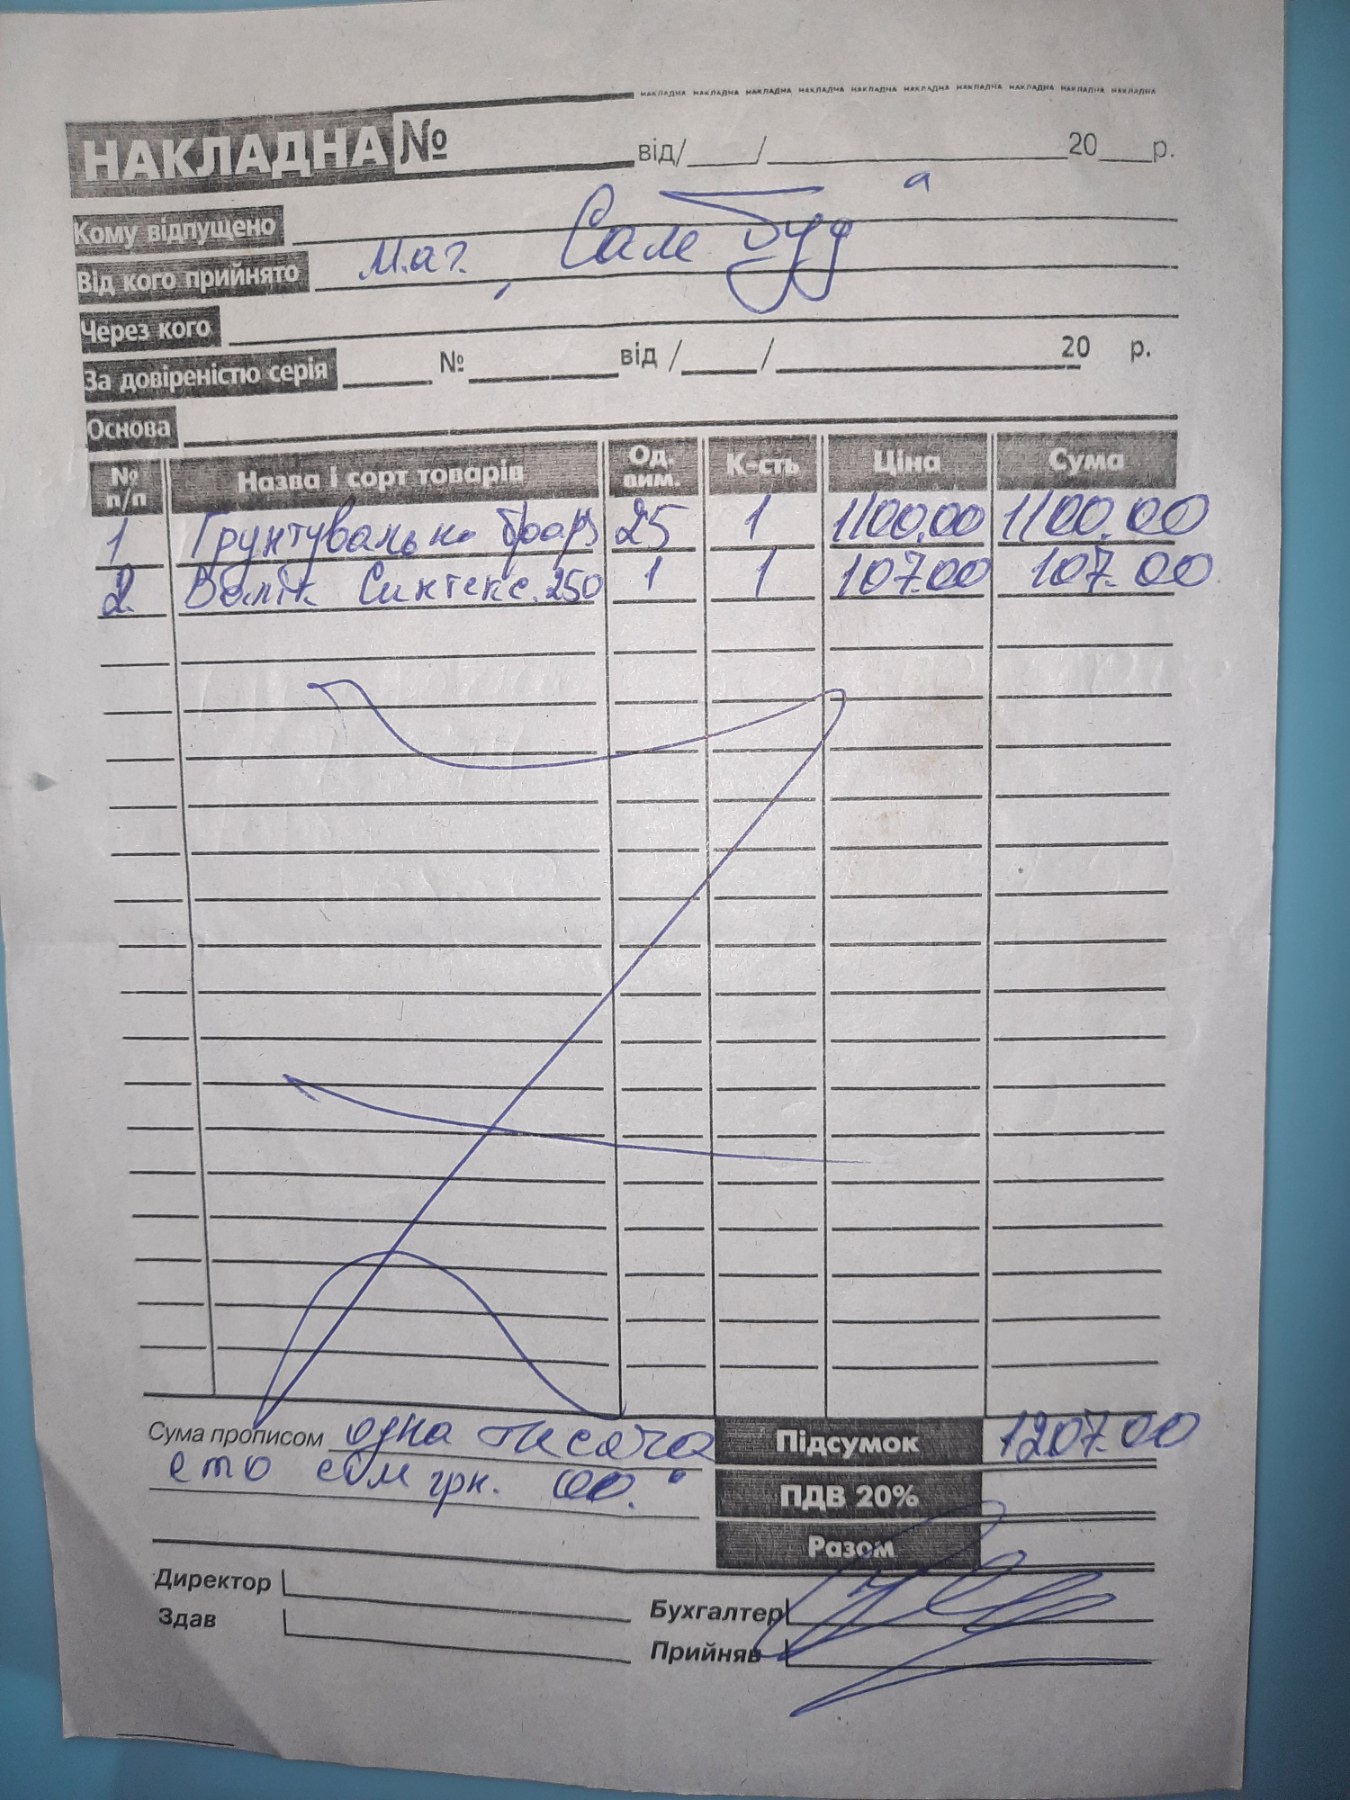 НАКЛАДНА НАКЛАДНА НАКЛАДНА НАКЛАДНА НАКЛАДНА НАКЛАДНА НАКЛАДНА НАКЛАДНА НАКЛАДНА НАКЛАДНА
НАКЛАДНА № від/ / 20 р.
Кому відпущено
Від кого прийнято Маг. , Сам Буд
Через кого
За довіреністю серія № від / / 20 р.
Основа
№ п/п Назва і сорт товарів Од. вим. К-сть Ціна Сума
1 Грунтувальна 25 1 1100,00 1100,00
2. Валік Синтекс. 250 1 1 107.00 107.00
Сума прописом одна тисяча Підсумок 1207.00
сто сім грн. 00. ПДВ 20%
Разом
Директор Бухгалтер
Здав Прийняв